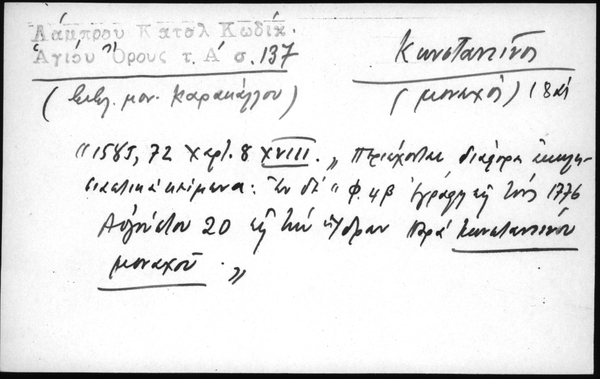 Λάμπρου Κατσλ Κωδίκ.
Ἁγίου Ὄρους τ. Α΄ σ. 137
Κωνσταντῖνος
(Βιβλ. μον. Καρακάλλου)
(μοναχός) 18 αἰ
"1585, 72 Χαρτ. 8 XVIII. „ Περιέχονται διάφορα ἐκκλη-
σιαστικὰ κείμενα: Ἐν δὲ " φ. 4β Ἐγράφη εἰς τοὺς 1776
Αὐγούστου 20 εἰς τὴν Ὕδραν παρὰ Κωνσταντίνου
μοναχοῦ. „